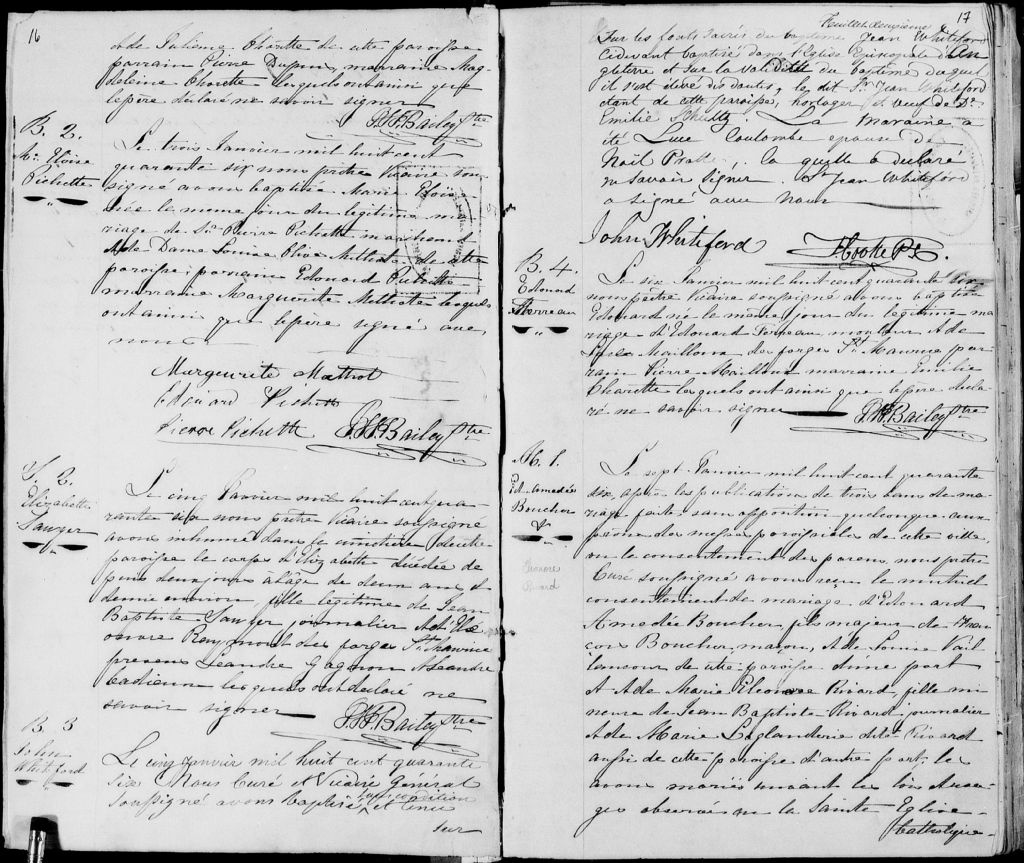 16
et de Julienne Charette de cette paroisse
parrain Pierre Dupuis, marraine Mag-
deleine Charette lesquels ont ainsi que
le père déclaré ne savoir signer
Bailey Ptre
B. 2.
Me. Eloïse
Pichette
Le trois Janvier mil huit cent
quarante six nous prêtre Vicaire sous-
signé avons baptisé Marie Eloïse
née le même jour du légitime ma-
riage de Sr. Pierre Pichette marchand
& de Dame Louise Olive Methot de cette
paroisse; parrain Edouard Pichette
marraine Marguerite Methot lesquels
ont ainsi que le père signé avec
nous.
Marguerite Methot
Edouard Pichette
Pierre Pichette Bailey Ptre
S. 2.
Elizabette
Sawyer
Le cinq Janvier mil huit cent qua-
rante six nous prêtre Vicaire soussigné
avons inhumé dans le cimetière de cette
paroisse le corps d'Elizabette décédée de-
puis deux jours à l'âge de deux ans et
demie environ, fille légitime de Jean
Baptiste Sawyer journalier & d'Elé
onore Raymond des forges St. Maurice
presens Leandre Gagnon & Leandre
lesquels ont déclaré ne
savoir signer Bailey Ptre
B. 3
John
Whiteford
Le cinq Janvier mil huit cent quarante
six Nous Curé et Vicaire Général
soussigné avons baptisé sous condition et tenu
sur
17
Feuillet deuxième
Sur les fonts sacrés du baptême Jean Whiteford
cidevant baptisé dans l'Eglise Episcopale d'An
gleterre et sur la validité du baptême duquel
il s'est élevé des doutes, le dit Sr. Jean Whiteford
étant de cette paroisse, horloger et veuf de De.
Emilie Shultz. La maraine a
été Luce Coulombe epouse de
Noël Pratte, la quelle a declaré
ne savoir signer. Sr Jean Whiteford
a signé avec Nous
John Whiteford Cooke Ptr.
B. 4
Edouard
Terreau
Le six Janvier mil huit cent quarante six
nous prêtre Vicaire soussigné avons baptisé
Edouard né le même jour du légitime ma-
riage d'Edouard Terreau mouleur & de
Mailloux des forges St. Maurice par-
rain Pierre Mailloux marraine Emilie
Charette lesquels ont ainsi que le père décla-
ré ne savoir signer Bailey Ptre
M. 1.
Ed. Amedée
Boucher
&
Eleonore
Rivard
Le sept Janvier mil huit cent quarante
six, après les publications de trois bans de ma-
riage faite sans opposition quelconque aux
prônes des messes paroissiales de cette ville,
vu le consentement des parens nous prêtre
Curé soussigné avons reçu le mutuel
consentement de mariage d'Edouard
Amedée Boucher fils majeur de Fran
çois Boucher maçon, & de Louise Vail
lancour de cette paroisse d'une part
& de Marie Eléonore Rivard, fille mi
neure de Jean Baptiste Rivard journalier
& de Marie Leglanderie dite Rivard
aussi de cette paroisse d'autre part, les
avons mariés suivant les lois & usa-
ges observés en la Sainte Eglise
Catholique